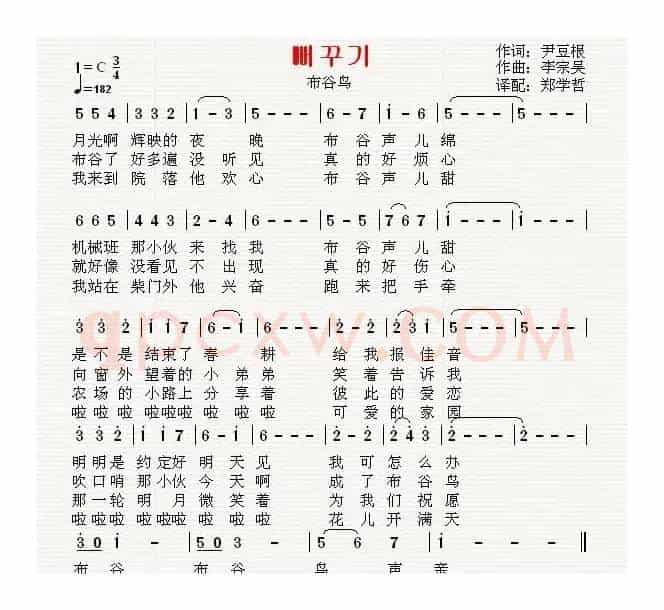 뻐꾸기
布谷鸟
1=C 3/4
♩=182
作词: 尹豆根
作曲: 李宗吴
译配: 郑学哲
5 5 4 | 3 3 2 | 1 - 3 | 5 - - | 6 - 7 | 1̇ - 6 | 5 - - | 5 - - |
月光啊 辉映的 夜 晚 布 谷 声 儿 绵
布谷了 好多遍 没 听 见 真 的 好 烦 心
我来到 院 落 他 欢 心 布 谷 声 儿 甜
6 6 5 | 4 4 3 | 2 - 4 | 6 - - | 5 - 5 | 7 6 7 | 1̇ - - | 1̇ - - |
机械班 那小伙 来 找 我 布 谷 声 儿 甜
就好像 没看见 不 出 现 真 的 好 伤 心
我站在 柴门外 他 兴 奋 跑 来 把 手 牵
3̇ 3̇ 2̇ | 1̇ 1̇ 7 | 6 - 1̇ | 6 - - | 2̇ - 2̇ | 2̇ 3̇ 1̇ | 5 - - | 5 - - |
是 不 是 结束了 春 耕 给 我 报 佳 音
向 窗 外 望着的 小 弟 弟 笑 着 告 诉 我
农 场 的 小路上 分 享 着 彼 此 的 爱 恋
啦 啦 啦 啦啦啦 啦 啦 啦 可 爱 的 家 园
3̇ 3̇ 2̇ | 1̇ 1̇ 7 | 6 - 1̇ | 6 - - | 2̇ - 2̇ | 2̇ 4̇ 3̇ | 2̇ - - | 2̇ - - |
明明是 约定好 明 天 见 我 可 怎 么 办
吹口哨 那小伙 今 天 啊 成 了 布 谷 鸟
那 一 轮 明 月 微 笑 着 为 我 们 祝 愿
啦啦啦 啦啦啦 啦 啦 啦 花 儿 开 满 天
3̇ 0 1̇ - | 5 0 3 - | 5 6 7 | 1̇ - - | 1̇ - - ‖
布 谷 布 谷 鸟 声 亲
qpcxw.COM